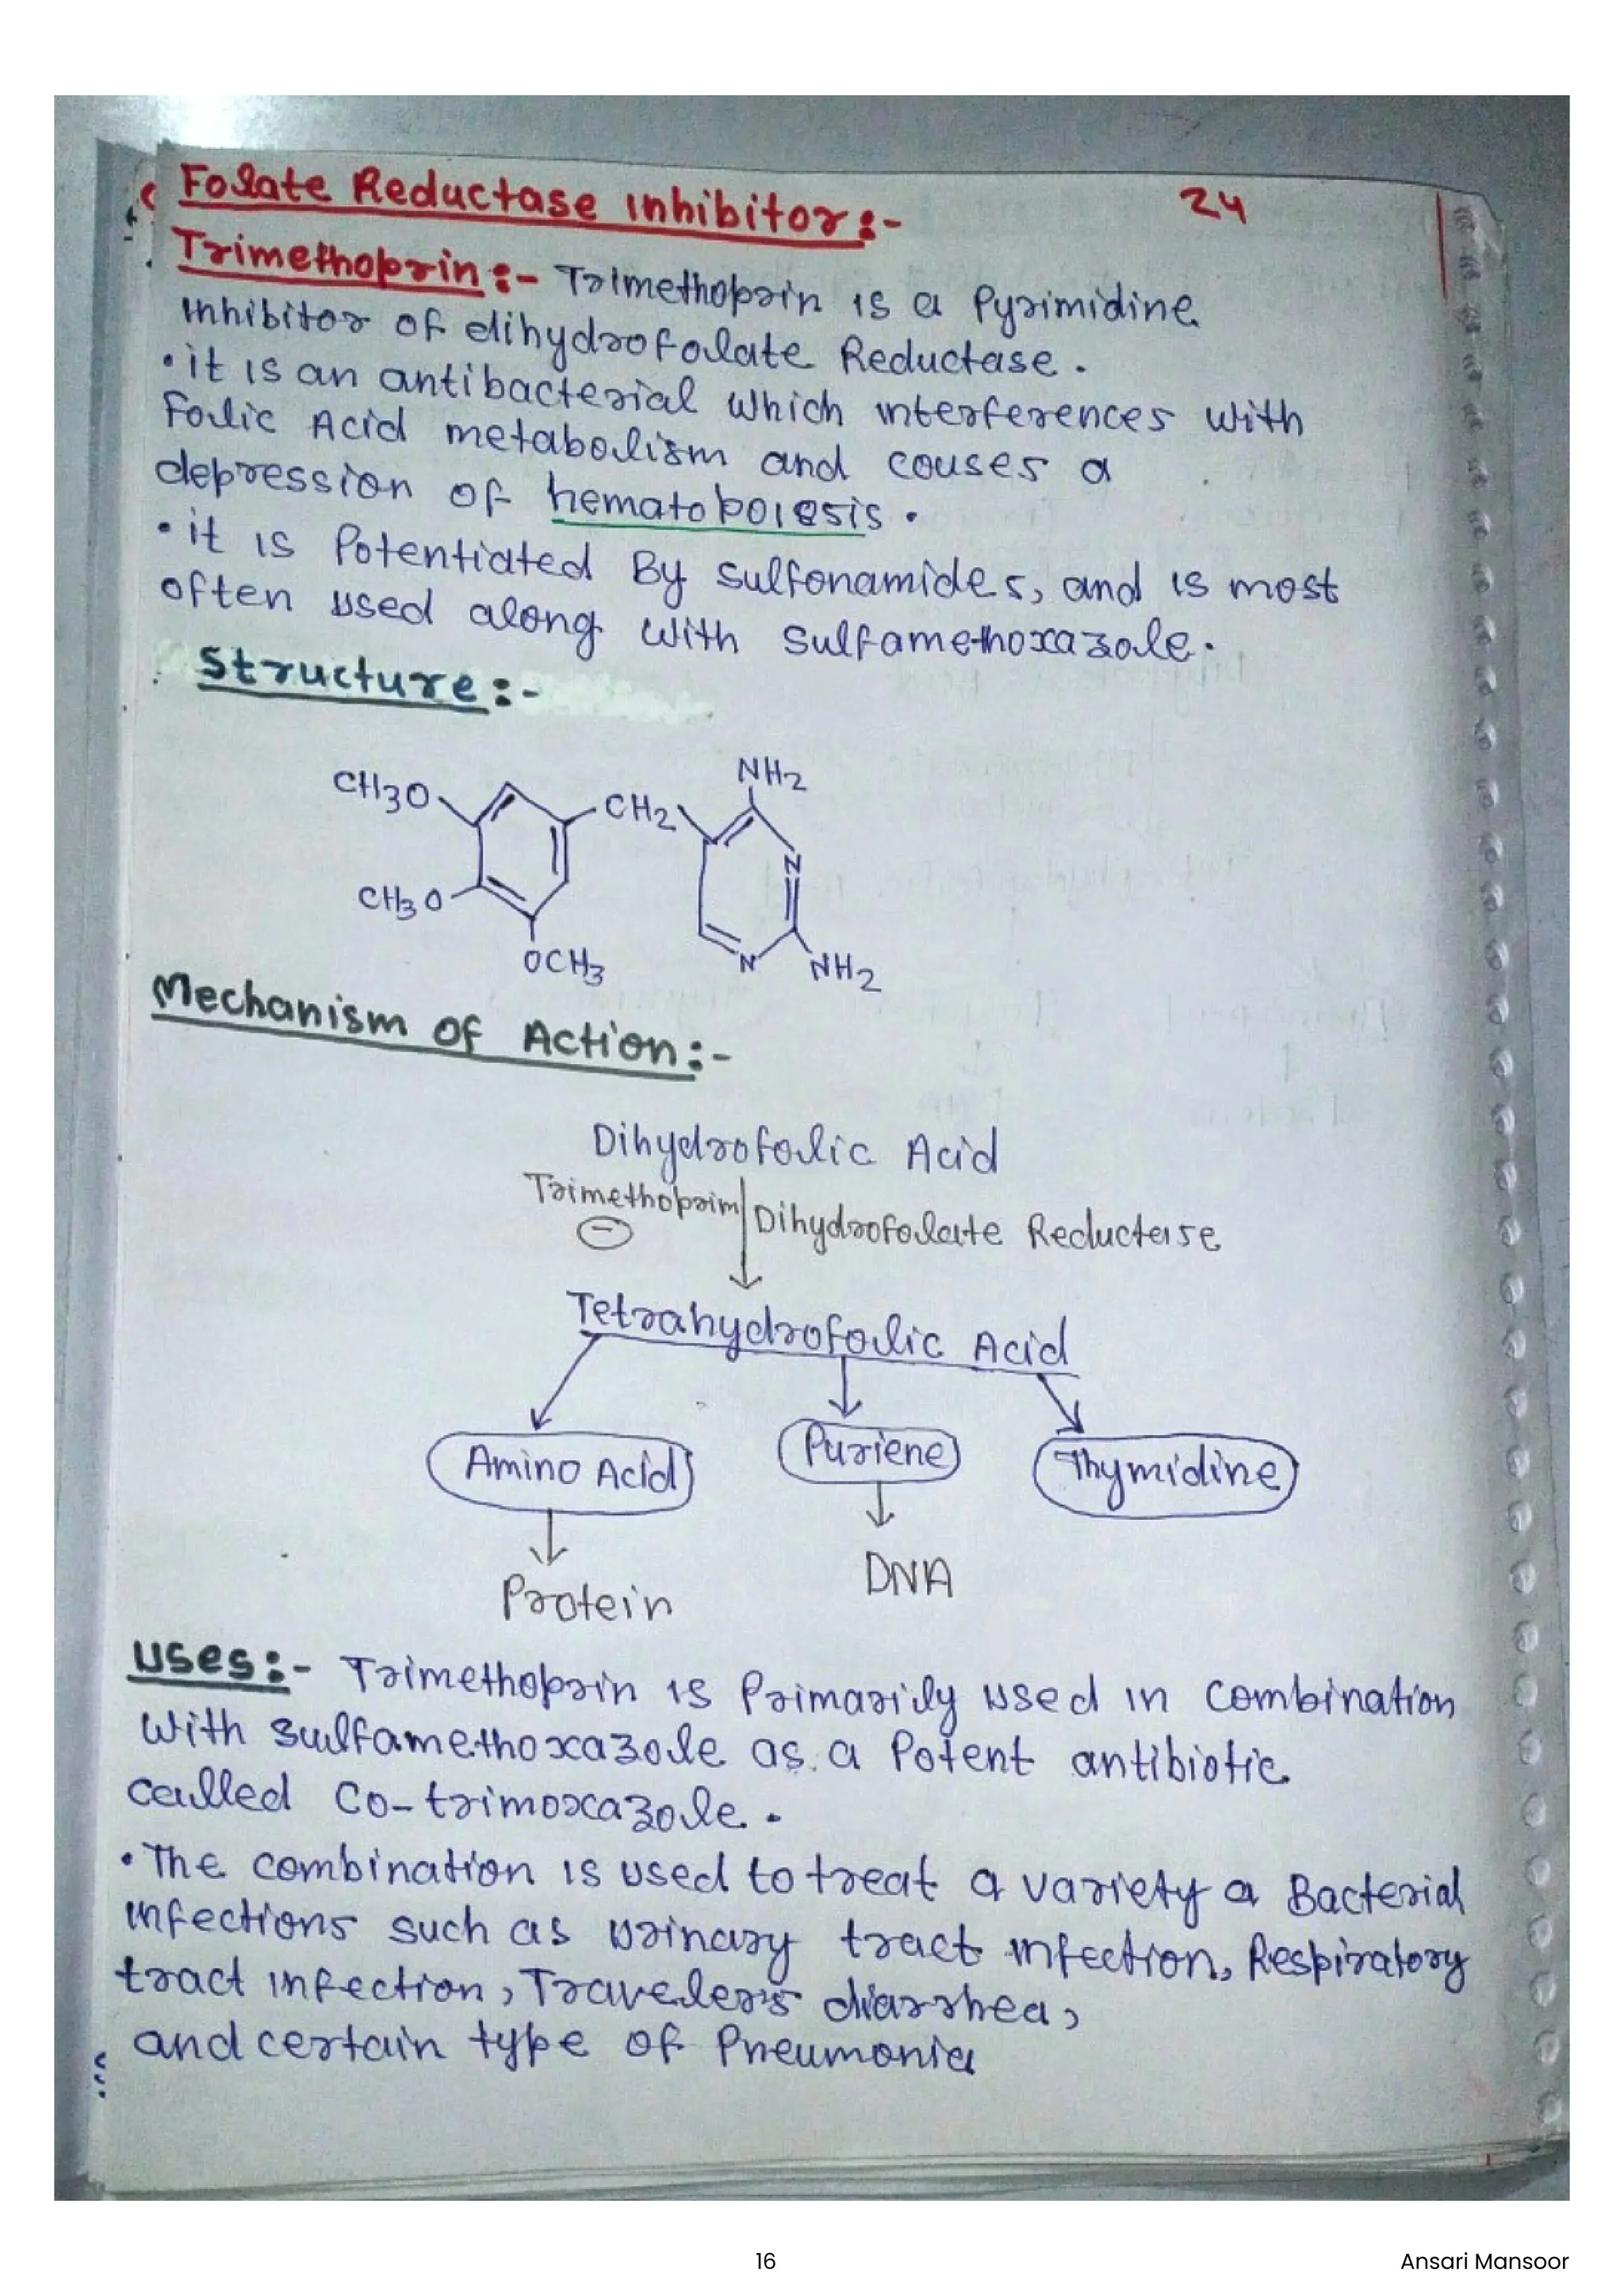 Folate Reductase Inhibitor:-
24
Trimethoprin:- Trimethoprin is a Pyrimidine
inhibitor of dihydrofolate Reductase.
• it is an antibacterial which interferences with
Folic Acid metabolism and couses a
depression of hematopoiesis.
• it is Potentiated By sulfonamides, and is most
often used along with sulfamethoxazole.
Structure:-
NH2
CH3O
CH2
N
CH3O
N
NH2
OCH3
Mechanism of Action:-
Dihydrofolic Acid
Trimethoprim Dihydrofolate Reductase
-
Tetrahydrofolic Acid
Amino Acid Puriene Thymidine
Protein DNA
Uses:- Trimethoprin is Primarily used in combination
with sulfamethoxazole as a Potent antibiotic
called Co-trimoxazole.
• The combination is used to treat a variety a Bacterial
infections such as urinary tract infection, Respiratory
tract infection, Traveler's diarrhea,
and certain type of Pneumonia
16
Ansari Mansoor